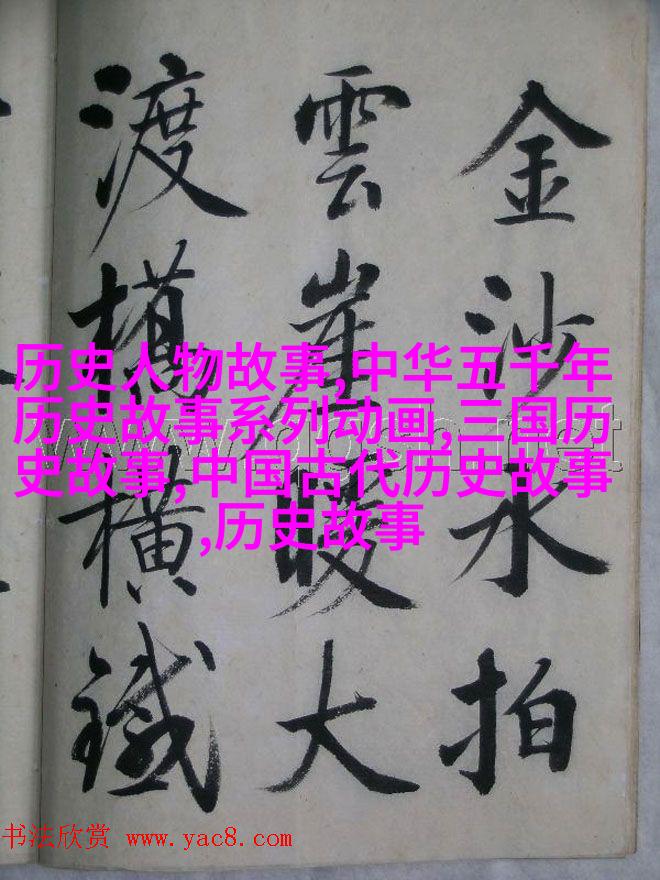 金沙水拍
雲崖暖大
渡橋橫鐵
历史人物故事,中华五千年
历史故事系列动画,三国历
史故事,中国古代历史故事
,历史故事
书法欣赏 www.yac8.com